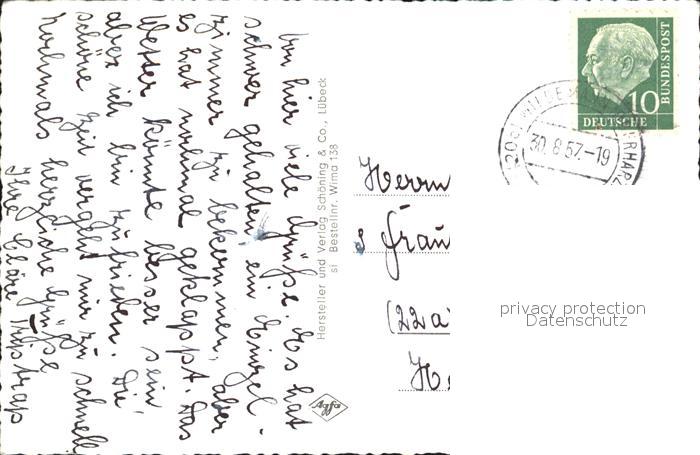 Von hier viele Grüße. Es hat
schwer gehalten ein Einzel-
zimmer zu bekommen, aber
es hat nochmal geklappt. Das
Wetter könnte besser sein
aber ich bin zufrieden. Die
schöne Zeit vergeht mir zu schnell
Nochmals herzliche Grüße
Ihre Kläre
Hersteller und Verlag Schöning & Co., Lübeck
si Bestellnr. Wima 138
Agfa
10
DEUTSCHE
BUNDESPOST
(20b) WILDEMANN OBERHARZ
30.8.57.-19
Herrn
Frau
(22a)
privacy protection
Datenschutz